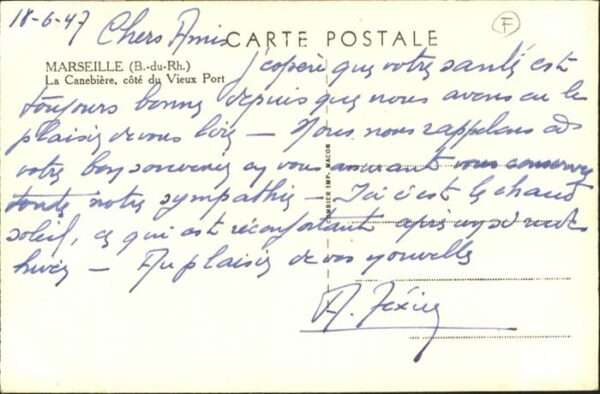 18-6-47
Chers Amis
F
CARTE POSTALE
MARSEILLE (B.-du-Rh.)
La Canebière, côté du Vieux Port
J'espère que votre santé est
toujours bonne depuis que nous avons eu le
plaisir de vous lire — Nous nous rappelons à
votre bon souvenir en vous assurant vous conserver
toute notre sympathie — Ici c'est le chaud
soleil, ce qui est réconfortant après un si rude
hiver — Au plaisir de vos nouvelles
COMBIER IMP. MACON